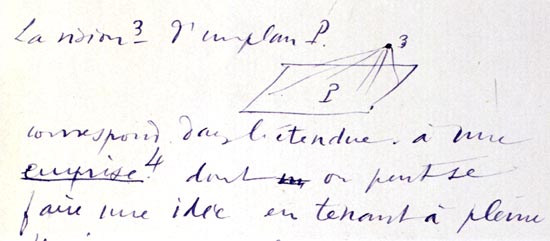 La vision 3 d'un plan P.
3
P
correspond dans l'étendue à une
emprise 4 dont on peut se
faire une idée en tenant à pleine